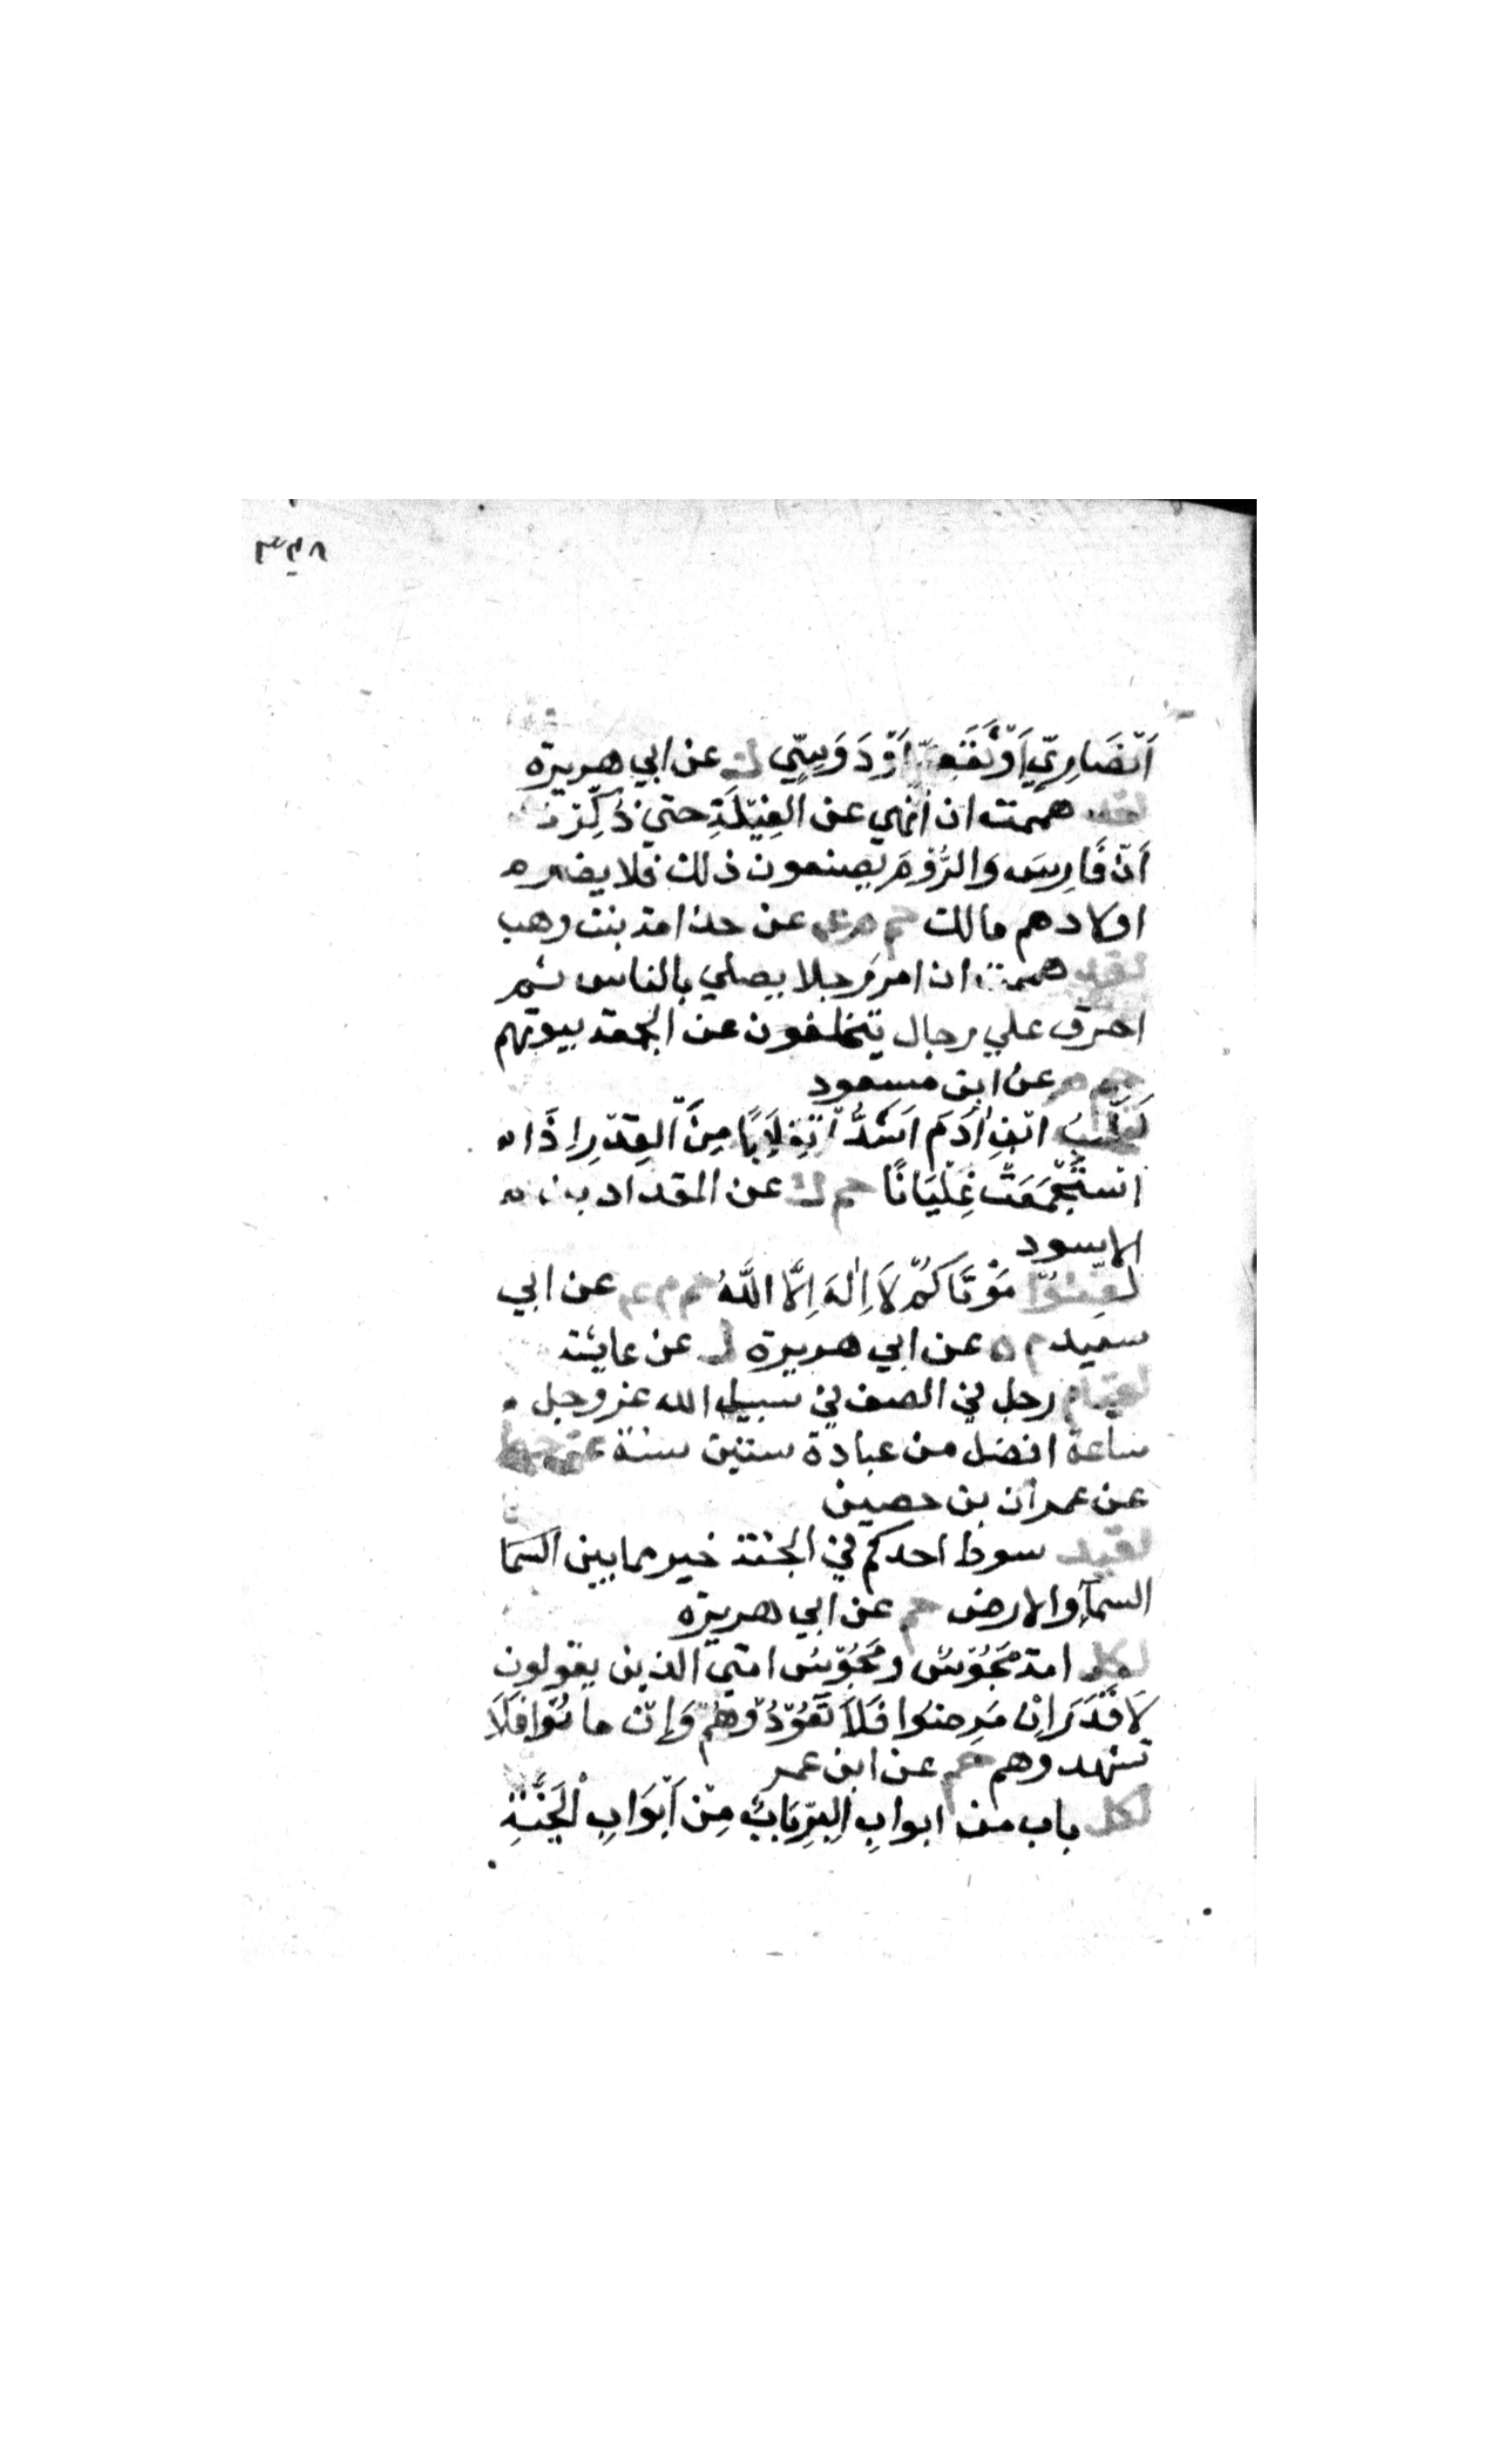 ٣٤٨
اَنْصَارِيٍّ اَوْ ثَقَفِيٍّ اَوْ دَوْسِيٍّ ن عن ابي هريرة
لقد هممت ان انهي عن الغِيْلَةِ حتي ذُكِّرْتُ
اَنَّ فَارِسَ وَالرُّوْمَ يصنعون ذلك فلا يضر
اولادهم مالك حم م عن جذامة بنت وهب
لقد هممت ان امر رجلا يصلي بالناس ثم
احرق علي رجال يتخلفون عن الجمعة بيوتهم
حم م عن ابن مسعود
لَقَلْبُ ابْنِ اٰدَمَ اَشَدُّ انْقِلَابًا مِنَ الْقِدْرِ اِذَا
اسْتَجْمَعَتْ غَلْيَانًا حم ك عن المقداد بن
الاسود
لَقِّنُوْا مَوْتَاكُمْ لَا اِلٰهَ اِلَّا اللّٰهُ حم م عم عن ابي
سعيد م ه عن ابي هريرة ن عن عايشة
لقيام رجل في الصف في سبيل الله عز وجل
ساعة افضل من عبادة ستين سنة عق خط
عن عمران بن حصين
لقيد سوط احدكم في الجنة خير مما بين السما
السمآء والارض حم عن ابي هريرة
لكل امة مَجُوْسٌ ومَجُوْسُ امتي الذين يقولون
لَا قَدَرَ اِنْ مَرِضُوا فَلَا تَعُوْدُوْهُمْ وَاِنْ مَاتُوْا فَلَا
تشهدوهم حم عن ابن عمر
لكل باب من ابواب البِرِّ بَابٌ مِنْ اَبْوَابِ الْجَنَّةِ